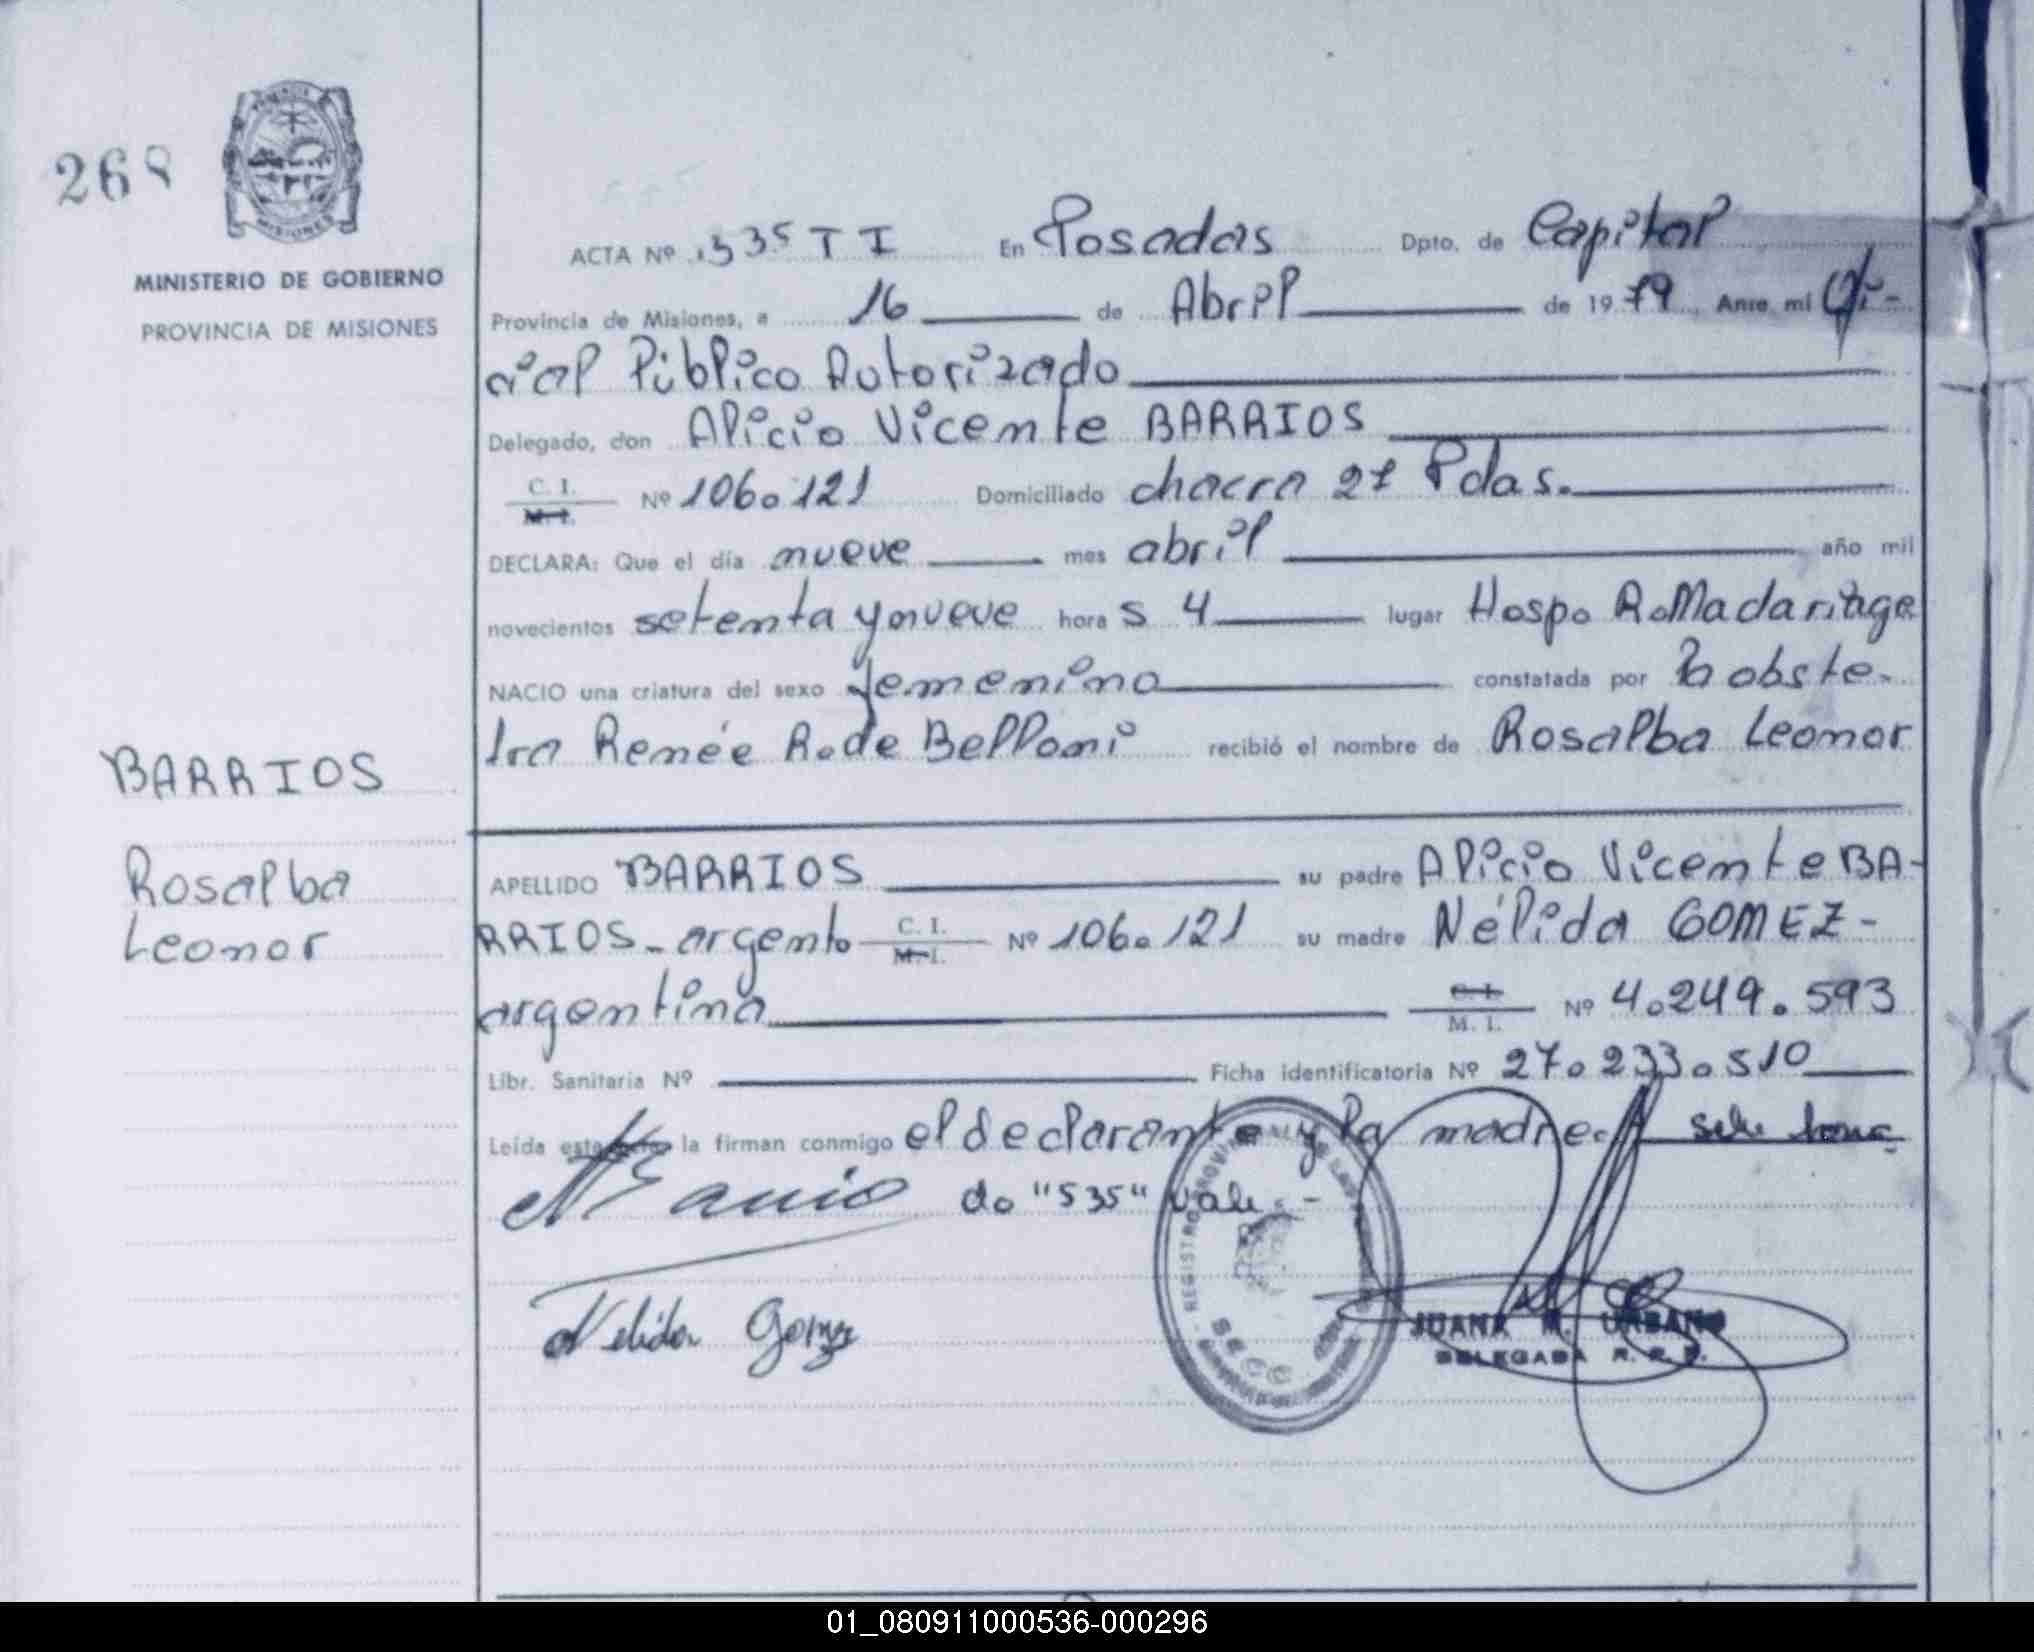 268
PROVINCIA DE
MISIONES
MINISTERIO DE GOBIERNO
PROVINCIA DE MISIONES
BARRIOS
Rosalba
Leonor
ACTA Nº 535 T I En Posadas Dpto. de Capital
Provincia de Misiones, a 16 de Abril de 1979 Ante mi Ofi-
cial Público Autorizado
Delegado, don Alicio Vicente BARRIOS
C. I.
M. I. Nº 106.121 Domiciliado chacra 27 Pdas.
DECLARA: Que el día nueve mes abril año mil
novecientos setenta y nueve hora s 4 lugar Hosp. R.Madariaga
NACIO una criatura del sexo femenino constatada por la obste-
tra Renée R. de Belloni recibió el nombre de Rosalba Leonor
APELLIDO BARRIOS su padre Alicio Vicente BA-
RRIOS - argento C. I.
M. I. Nº 106.121 su madre Nélida GOMEZ -
argentina C. I.
M. I. Nº 4.249.593
Libr. Sanitaria Nº Ficha identificatoria Nº 27.233.510
Leída esta acta la firman conmigo el declarante y la madre.
do "535" vale. -
Nelida Gomez
REGISTRO PROVINCIAL DE LAS PERSONAS
JUANA M. URBANO
DELEGADA R. P. P.
01_080911000536-000296